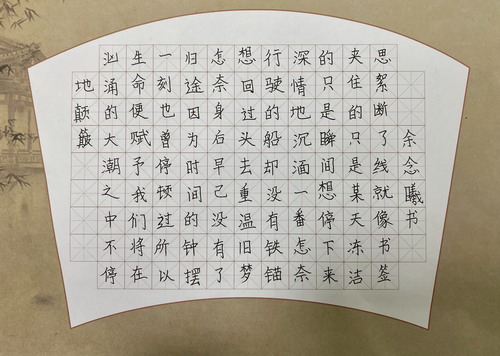 思絮断了线就像书签
夹住的只是某天冻洁
的只是瞬间想停下来
深情地沉湎一番怎奈
行驶的船却没有铁锚
想回过头去重温旧梦
怎奈身后早已没有了
归途因为时间的钟摆
一刻也曾停顿过所以
生命便赋予我们将在
汹涌的大潮之中不停
地颠簸
余念曦书